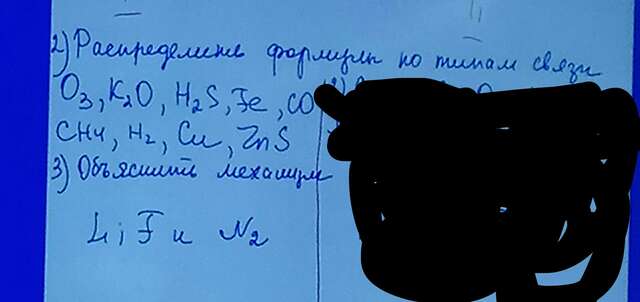 2) Распределить формулы по типам связи
O3, K2O, H2S, Fe, CO
CH4, H2, Cu, ZnS
3) Объяснить механизм
LiF и N2